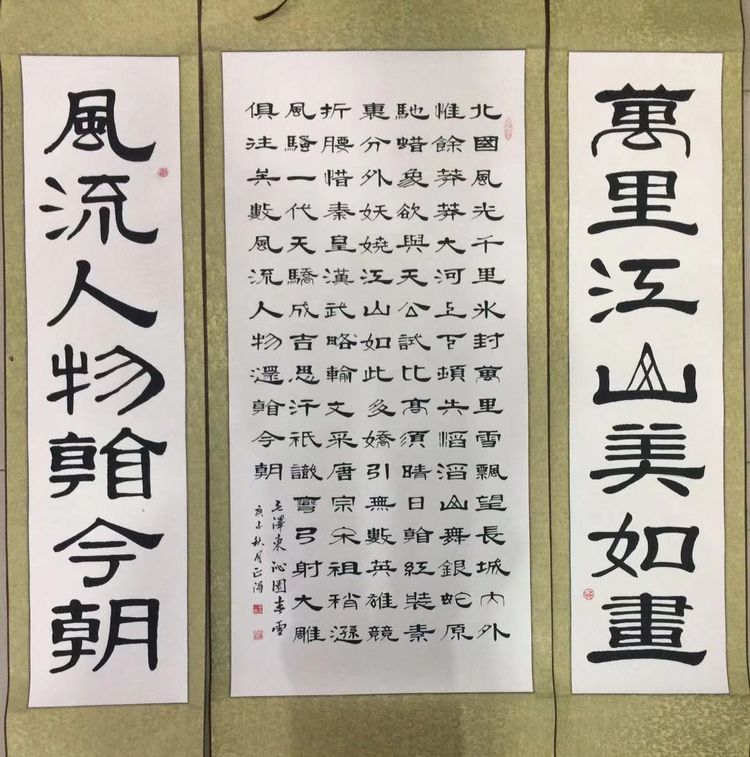 萬里江山美如畫
北國風光千里氷封萬里雪飄望長城內外
惟餘莽莽大河上下頓失滔滔山舞銀蛇原
馳蜡象欲與天公試比高須晴日看紅裝素
裹分外妖嬈江山如此多嬌引無數英雄競
折腰惜秦皇漢武略輸文采唐宗宋祖稍遜
風騷一代天驕成吉思汗祇識彎弓射大雕
俱往矣數風流人物還看今朝
毛澤東沁園春雪
庚子秋月正海
風流人物看今朝